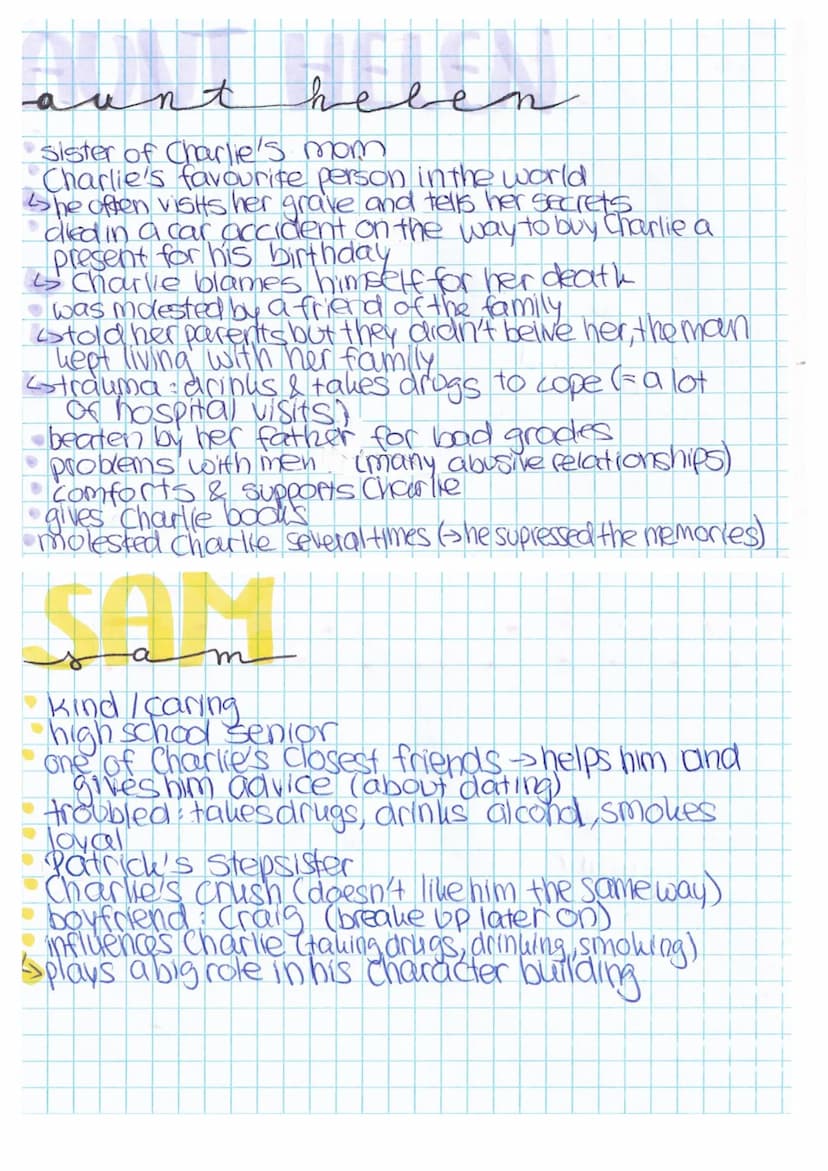 AUNT HELEN
aunt helen
• sister of Charlie's mom
• Charlie's favourite person in the world
↳ he often visits her grave and tells her secrets
• died in a car accident on the way to buy Charlie a
present for his birthday
↳ Charlie blames himself for her death
• was molested by a friend of the family
↳ told her parents but they didn't belive her, the man
kept living with her family
↳ trauma: drinks & takes drugs to cope (= a lot
of hospital visits)
• beaten by her father for bad grades
• problems with men (many abusive relationships)
• comforts & supports Charlie
• gives Charlie books
• molested Charlie several times (→ he supressed the memories)
SAM
sam
• kind / caring
• high school senior
• one of Charlie's closest friends → helps him and
gives him advice (about dating)
• troubled: takes drugs, drinks alcohol, smokes
• loyal
• Patrick's stepsister
• Charlie's crush (doesn't like him the same way)
• boyfriend: Craig (breake up later on)
• influences Charlie (taking drugs, drinking, smoking)
↳ plays a big role in his character building